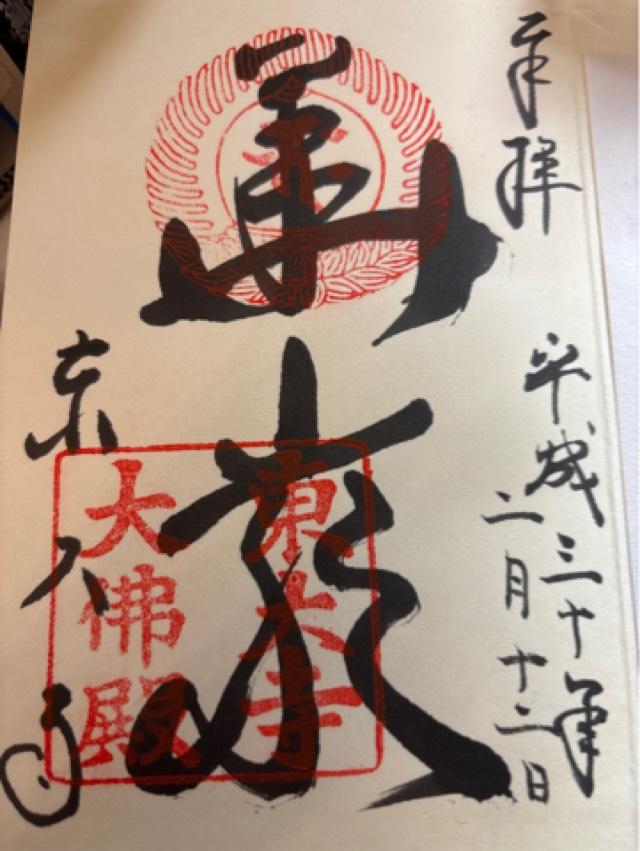 奉拝
平成三十年
二月十二日
華厳
東大寺
東大寺
大佛殿